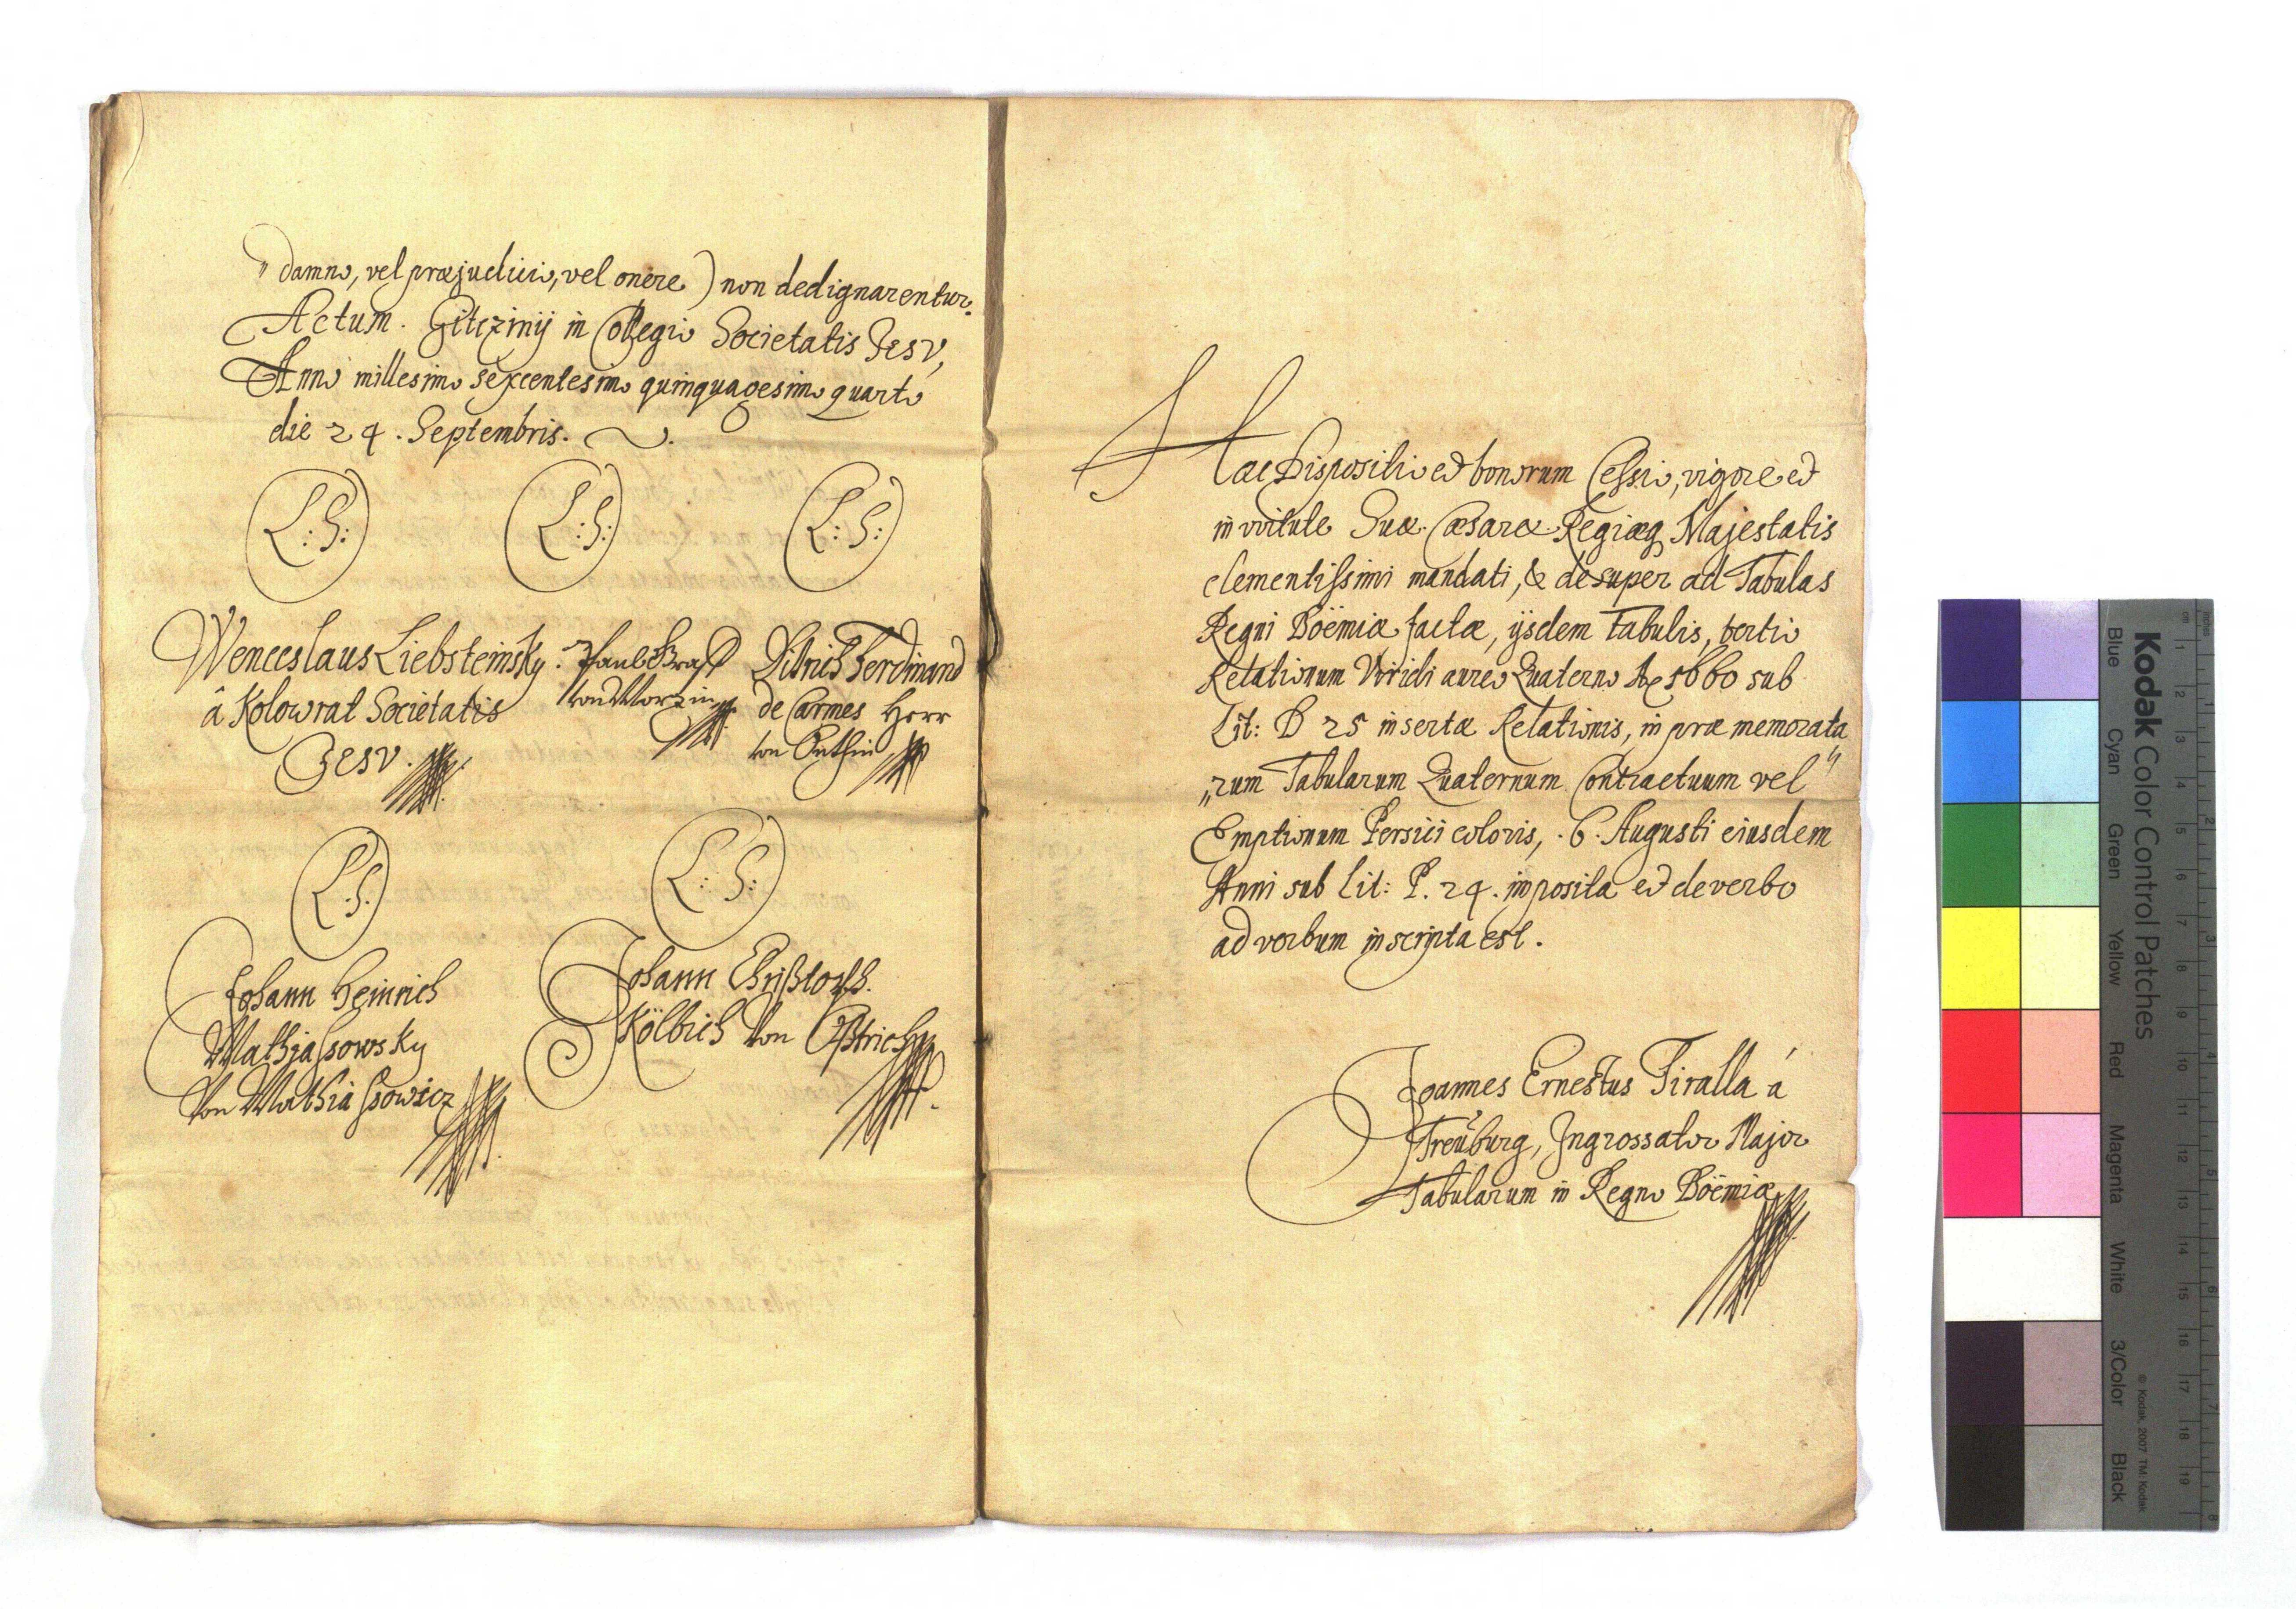 „damno, vel præjudicio, vel onere) non dedignarentur.
Actum. Gitczinij in Collegio Societatis Jesv,
Anno millesimo sexcentesimo quinquagesimo quarto
die 24. Septembris.
L: S: L: S: L: S:
Wenceslaus Liebsteinsky
â Kolowrat Societatis
Jesv.
Paul Graff
von Morzin
Ditrich Ferdinand
de Carmes Herr
von
L. S. L: S:
Johann Heinrich
Mathjasowsky
von Mathiasowicz
Johann Christoph.
Kölbich von
Hæc Dispositio et bonorum Cessio, vigore et
in virtute Suæ Cæsareæ Regiæq Majestatis
clementissimi mandati, & desuper ad Tabulas
Regni Böemiæ factæ, ijsdem Tabulis, tertio
Relationum Viridi aureo Quaterno Ao 1660 sub
Lit: D 25 insertæ Relationis, in præmemorata
„rum Tabularum Quaternum Contractuum vel"
Emptionum Persici coloris, .6. Augusti eiusdem
Anni sub Lit: P. 24. imposita et de verbo
ad verbum inscripta est.
Joannes Ernestus Tiralla á
Treüburg, Ingrossator Major
Tabularum in Regno Böemiæ
Kodak Color Control Patches
Blue Cyan Green Yellow Red Magenta White 3/Color Black
© Kodak, 2007 TM: Kodak
inches 1 2 3 4 5 6 7 8
cm 1 2 3 4 5 6 7 8 9 10 11 12 13 14 15 16 17 18 19